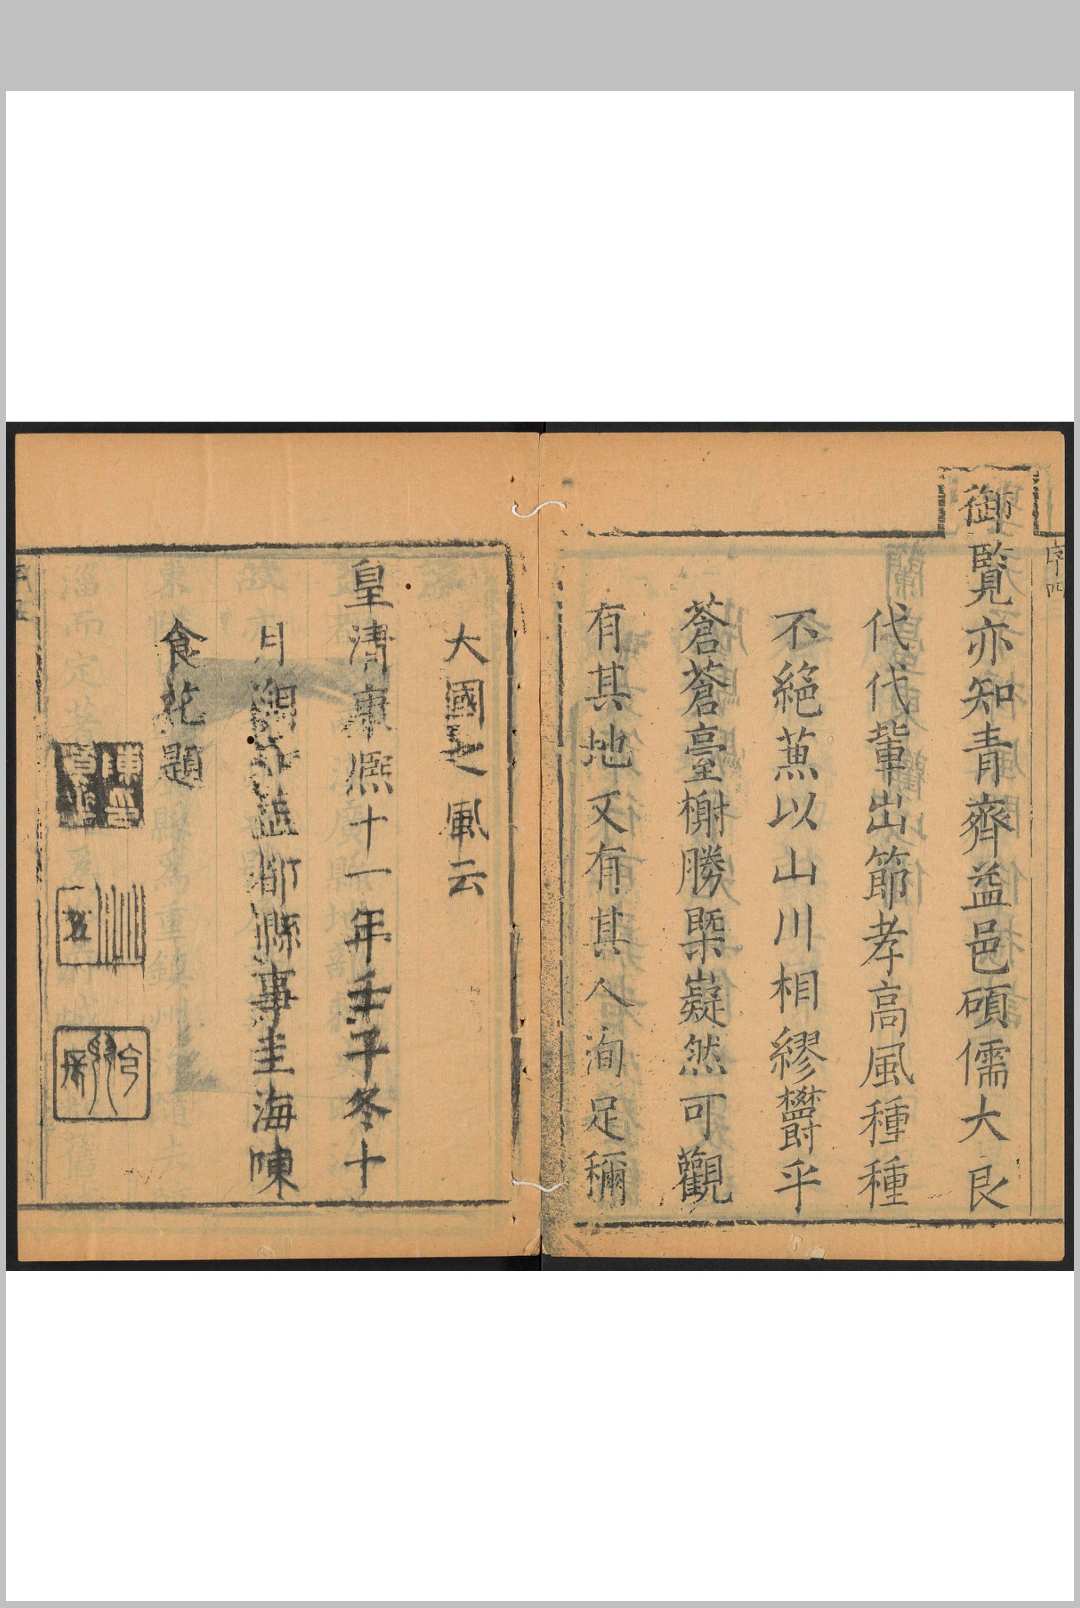 御覽亦知青齊益邑碩儒大良
代代輩出節孝高風種種
不絕蕉以山川相繆欝乎
蒼蒼臺榭勝槩嶷然可觀
有其地又有其人洵足稱
序四
大國之風云
皇清康熙十一年壬子冬十
月
縣事圭海陳
食花題